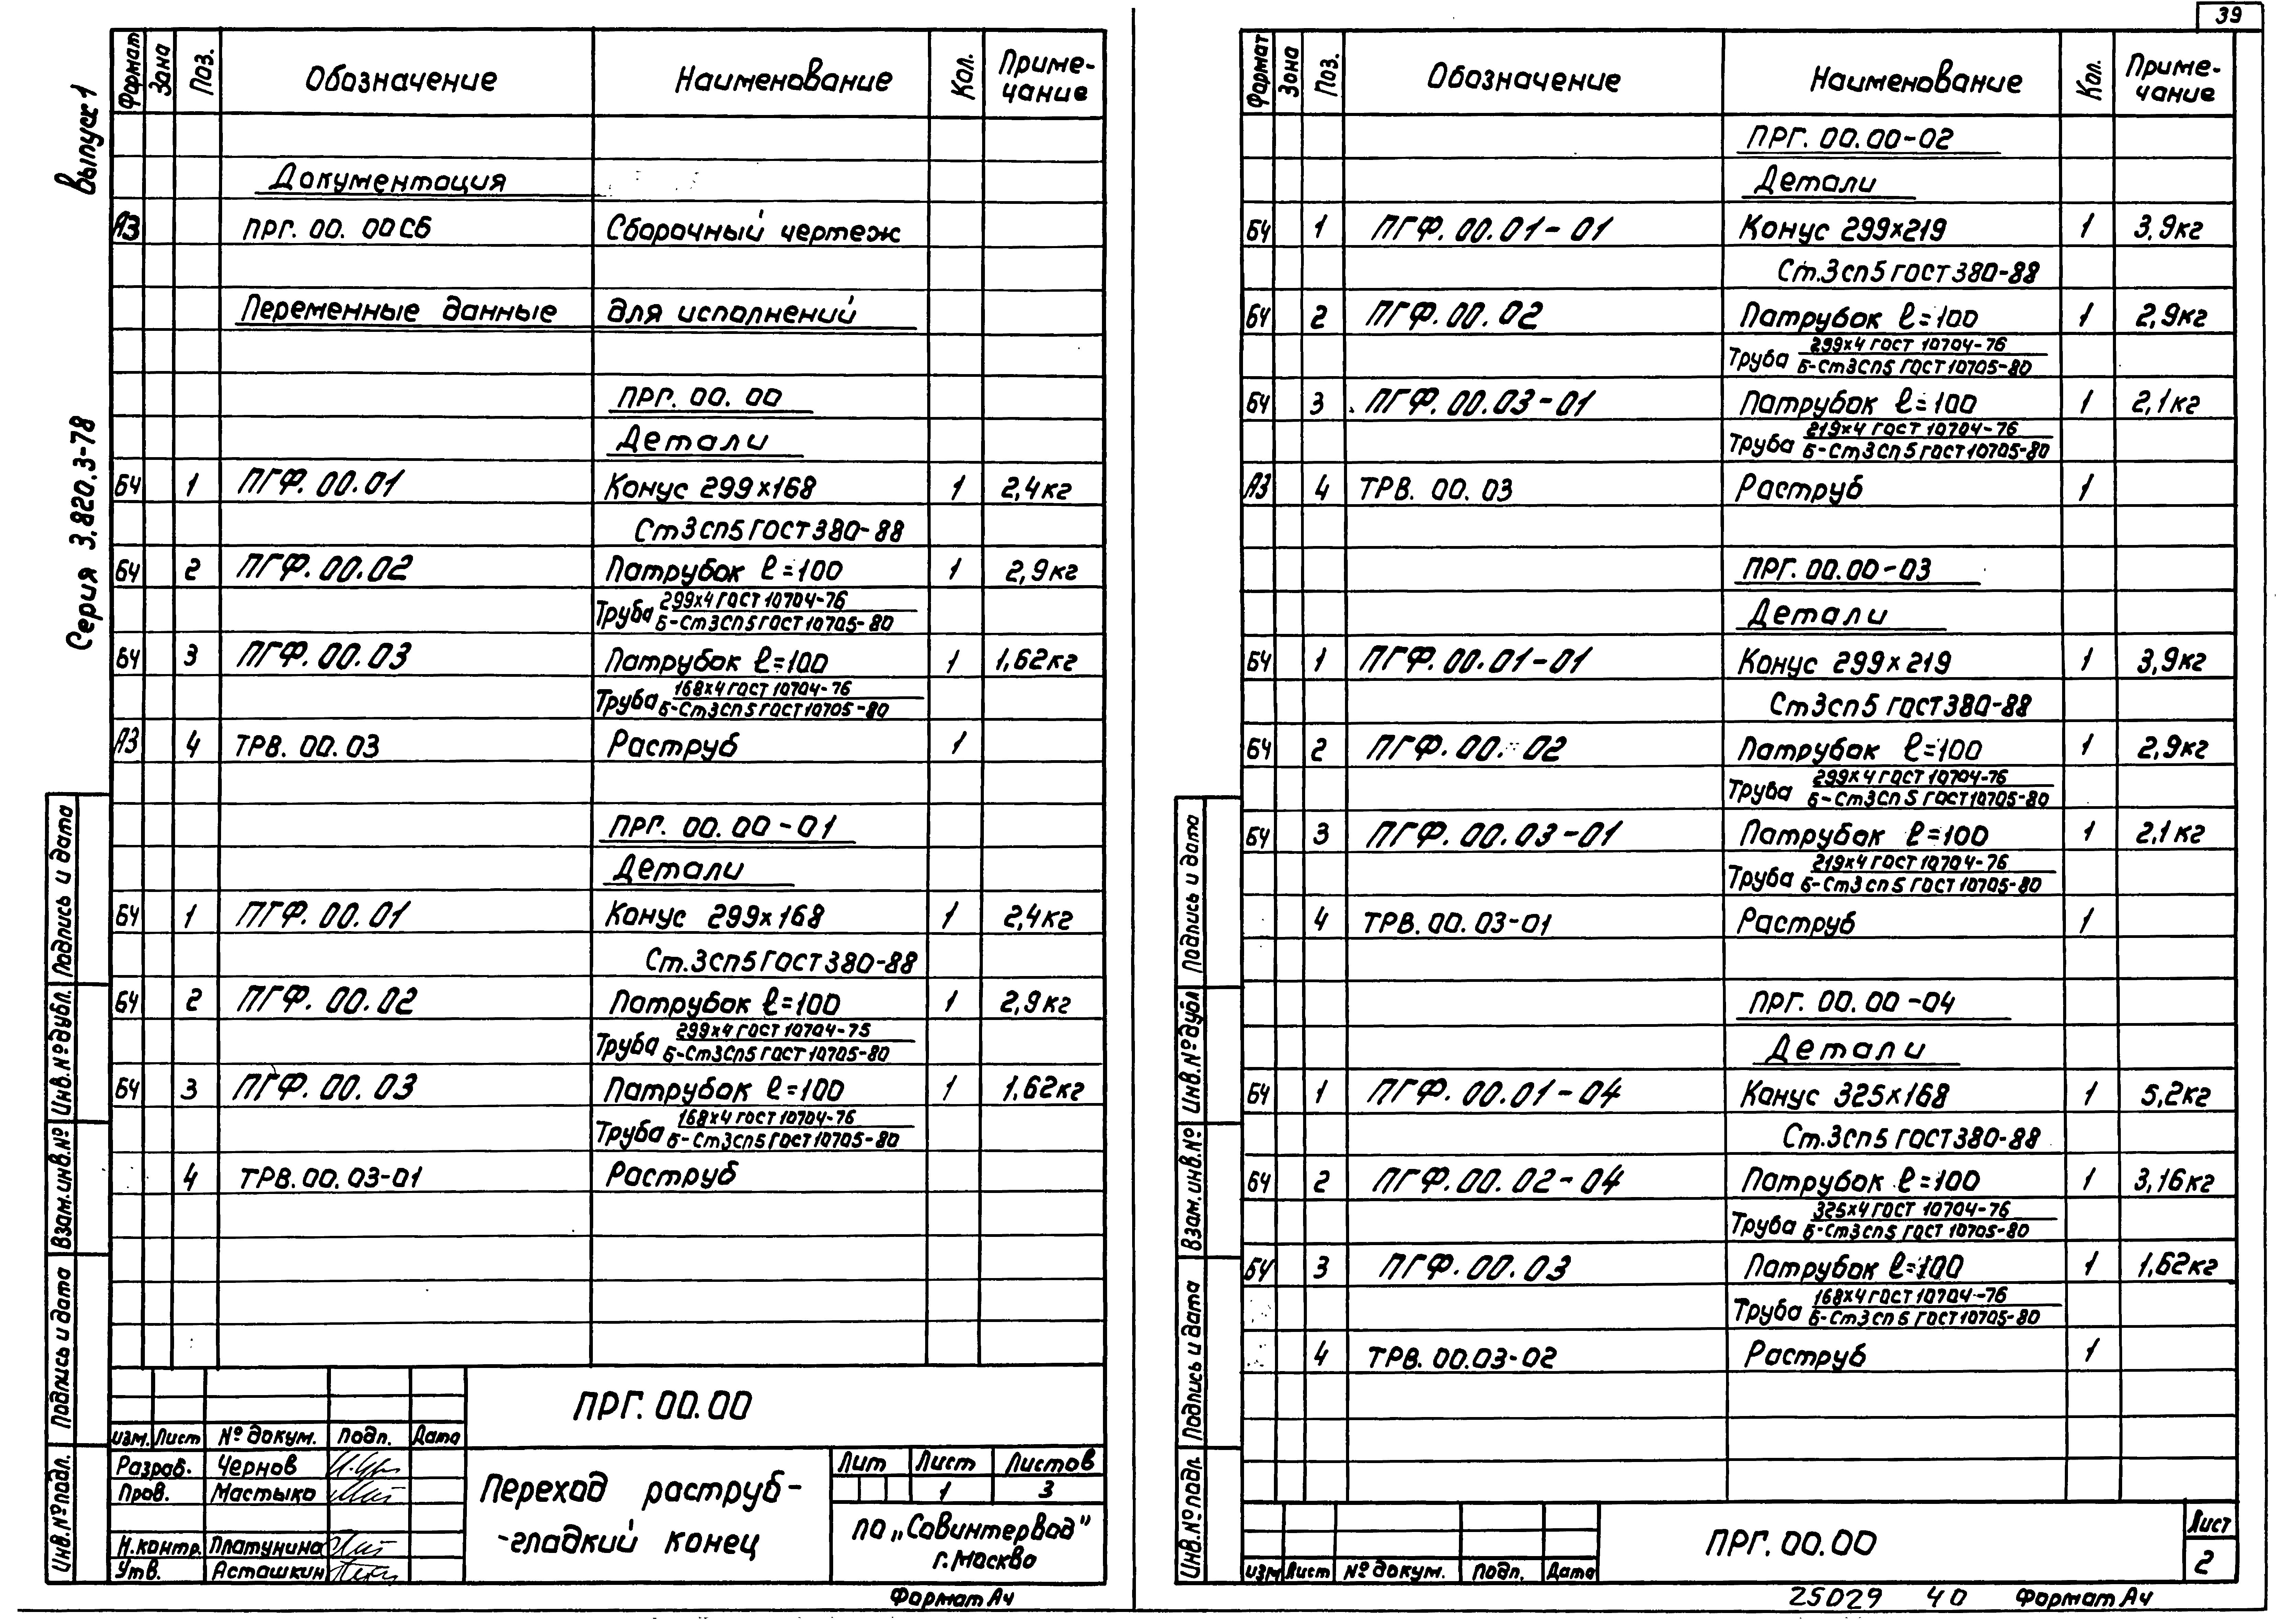 39
Серия 3.820.3-78 Выпуск 1
Формат Зона Поз. Обозначение Наименование Кол. Приме-
чание
Документация
А3 ПРГ. 00. 00 СБ Сборочный чертеж
Переменные данные для исполнений
ПРГ. 00. 00
Детали
БЧ 1 ПГФ. 00.01 Конус 299х168 1 2,4кг
Ст3сп5 ГОСТ 380-88
БЧ 2 ПГФ. 00.02 Патрубок ℓ=100 1 2,9кг
Труба 299х4 ГОСТ 10704-76
Б-Ст3сп5 ГОСТ 10705-80
БЧ 3 ПГФ. 00.03 Патрубок ℓ=100 1 1,62кг
Труба 168х4 ГОСТ 10704-76
Б-Ст3сп5 ГОСТ 10705-80
А3 4 ТРВ. 00. 03 Раструб 1
ПРГ. 00. 00-01
Детали
БЧ 1 ПГФ. 00. 01 Конус 299х168 1 2,4кг
Ст.3сп5 ГОСТ 380-88
БЧ 2 ПГФ. 00.02 Патрубок ℓ=100 1 2,9кг
Труба 299х4 ГОСТ 10704-75
Б-Ст3сп5 ГОСТ 10705-80
БЧ 3 ПГФ. 00. 03 Патрубок ℓ=100 1 1,62кг
Труба 168х4 ГОСТ 10704-76
Б-Ст3сп5 ГОСТ 10705-80
4 ТРВ. 00. 03-01 Раструб
Подпись и дата
Инв.№дубл.
Взам.инв.№
Подпись и дата
Инв.№подл.
ПРГ. 00.00
изм. Лист № докум. Подп. Дата
Разраб. Чернов
Пров. Мастыко
Н.контр. Платунина
Утв. Асташкин
Переход раструб-
-гладкий конец
Лит Лист Листов
1 3
ПО „Совинтервод"
г.Москва
Формат А4
Формат Зона Поз. Обозначение Наименование Кол. Приме-
чание
ПРГ. 00.00-02
Детали
БЧ 1 ПГФ. 00.01-01 Конус 299х219 1 3,9кг
Ст.3сп5 ГОСТ 380-88
БЧ 2 ПГФ. 00. 02 Патрубок ℓ=100 1 2,9кг
Труба 299х4 ГОСТ 10704-76
Б-Ст3сп5 ГОСТ 10705-80
БЧ 3 ПГФ. 00.03-01 Патрубок ℓ=100 1 2,1кг
Труба 219х4 ГОСТ 10704-76
Б-Ст3сп5 ГОСТ 10705-80
А3 4 ТРВ. 00. 03 Раструб 1
ПРГ. 00.00-03
Детали
БЧ 1 ПГФ. 00.01-01 Конус 299х219 1 3,9кг
Ст3сп5 ГОСТ 380-88
БЧ 2 ПГФ. 00. 02 Патрубок ℓ=100 1 2,9кг
Труба 299х4 ГОСТ 10704-76
Б-Ст3сп5 ГОСТ 10705-80
БЧ 3 ПГФ. 00. 03-01 Патрубок ℓ=100 1 2,1кг
Труба 219х4 ГОСТ 10704-76
Б-Ст3сп5 ГОСТ 10705-80
4 ТРВ. 00. 03-01 Раструб 1
ПРГ. 00. 00-04
Детали
БЧ 1 ПГФ. 00.01-04 Конус 325х168 1 5,2кг
Ст.3сп5 ГОСТ 380-88
БЧ 2 ПГФ. 00. 02-04 Патрубок ℓ=100 1 3,16кг
Труба 325х4 ГОСТ 10704-76
Б-Ст3сп5 ГОСТ 10705-80
БЧ 3 ПГФ. 00.03 Патрубок ℓ=100 1 1,62кг
Труба 168х4 ГОСТ 10704-76
Б-Ст3сп5 ГОСТ 10705-80
4 ТРВ. 00.03-02 Раструб 1
Подпись и дата
Инв.№дубл
Взам.инв.№
Подпись и дата
Инв.№подл.
изм Лист № докум. Подп. Дата
ПРГ. 00.00
Лист
2
25029 40 Формат А4